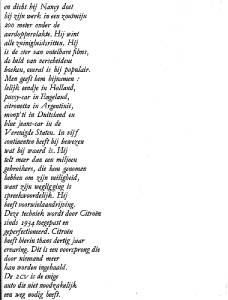 en dicht bij Nancy doet
hij zijn werk in een zoutmijn
200 meter onder de
aardoppervlakte. Hij wint
alle zuinigheidsritten. Hij
is de ster van ontelbare films,
de held van verscheidene
boeken, overal is hij populair.
Men geeft hem bijnamen :
lelijk eendje in Holland,
pussy-car in Engeland,
citronetta in Argentinië,
monp'ti in Duitsland en
blue jeans-car in de
Verenigde Staten. In vijf
continenten heeft hij bewezen
wat hij waard is. Hij
telt meer dan een miljoen
gebruikers, die hem genomen
hebben om zijn veiligheid,
want zijn wegligging is
spreekwoordelijk. Hij
heeft voorwielaandrijving.
Deze techniek wordt door Citroën
sinds 1934 toegepast en
geperfectioneerd. Citroën
heeft hierin thans dertig jaar
ervaring. Dit is een voorsprong die
door niemand meer
kan worden ingehaald.
De 2CV is de enige
auto die niet noodzakelijk
een weg nodig heeft.